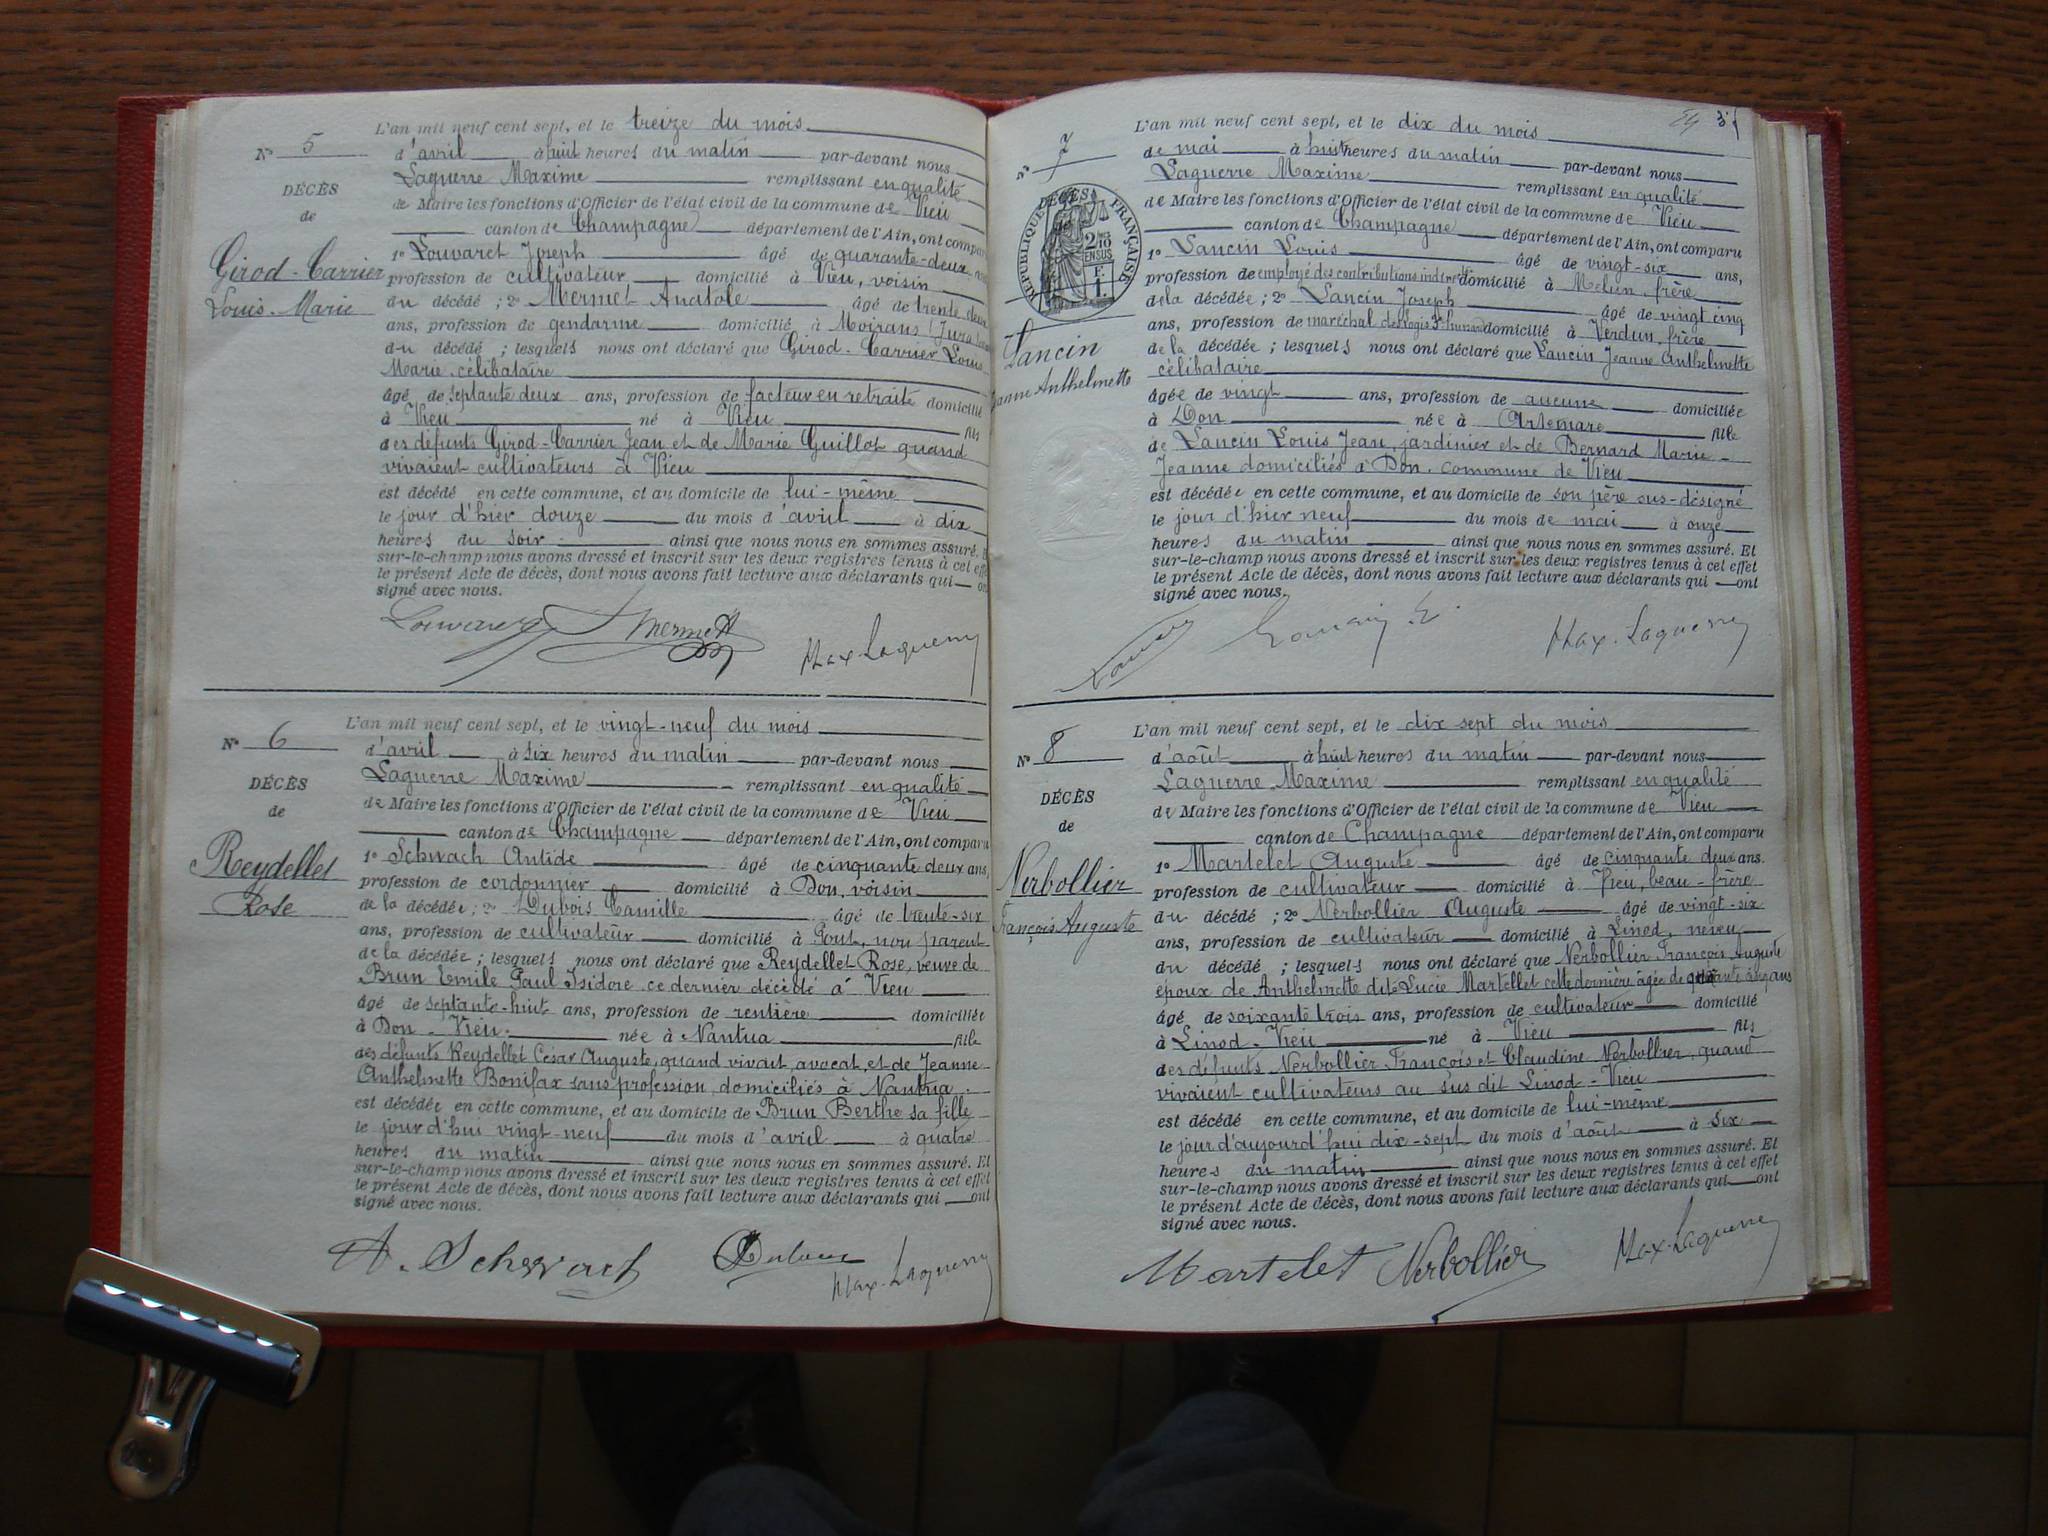 L'an mil neuf cent sept, et le treize du mois
N° 5
d'avril à huit heures du matin par-devant nous
Laguerre Maxime remplissant en qualité
DÉCÈS
de
de Maire les fonctions d'Officier de l'état civil de la commune de Vieu
canton de Champagne département de l'Ain, ont comparu
Girod-Carrier
Louis-Marie
1° Louvaret Joseph âgé de quarante-deux
profession de cultivateur domicilié à Vieu, voisin
du décédé ; 2° Mermet Anatole âgé de trente deux
ans, profession de gendarme domicilié à Moirans (Jura
du décédé ; lesquels nous ont déclaré que Girod-Carrier Louis
Marie célibataire
âgé de septante deux ans, profession de facteur en retraite domicilié
à Vieu né à Vieu fils
des défunts Girod-Carrier Jean et de Marie Guillot quand
vivaient cultivateurs à Vieu
est décédé en cette commune, et au domicile de lui-même
le jour d'hier douze du mois d'avril à dix
heures du soir ainsi que nous nous en sommes assuré. E
sur-le-champ nous avons dressé et inscrit sur les deux registres tenus à cet eff
le présent Acte de décès, dont nous avons fait lecture aux déclarants qui on
signé avec nous.
Louvaret Mermet A Max-Laguerre
L'an mil neuf cent sept, et le vingt-neuf du mois
N° 6
d'avril à six heures du matin par-devant nous
Laguerre Maxime remplissant en qualité
DÉCÈS
de
de Maire les fonctions d'Officier de l'état civil de la commune de Vieu
canton de Champagne département de l'Ain, ont comparu
Reydellet
Rose
1° Schwach Antide âgé de cinquante deux ans,
profession de cordonnier domicilié à Don, voisin
de la décédée ; 2° Dubois Camille âgé de trente-six
ans, profession de cultivateur domicilié à Pont, non parent
de la décédée ; lesquels nous ont déclaré que Reydellet Rose, veuve de
Brun Emile Paul Isidore ce dernier décédé à Vieu
âgé de septante-huit ans, profession de rentière domiciliée
à Don-Vieu née à Nantua fille
des défunts Reydellet César Auguste, quand vivait, avocat, et de Jeanne
Anthelmette Bonifax sans profession, domiciliés à Nantua.
est décédée en cette commune, et au domicile de Brun Berthe sa fille
le jour d'hui vingt-neuf du mois d'avril à quatre
heures du matin ainsi que nous nous en sommes assuré. Et
sur-le-champ nous avons dressé et inscrit sur les deux registres tenus à cet effet
le présent Acte de décès, dont nous avons fait lecture aux déclarants qui ont
signé avec nous.
A. Schwach Dubois Max-Laguerre
L'an mil neuf cent sept, et le dix du mois
N° 7
de mai à huit heures du matin par-devant nous
Laguerre Maxime remplissant en qualité
DÉCÈS
RÉPUBLIQUE FRANÇAISE
de Maire les fonctions d'Officier de l'état civil de la commune de Vieu
canton de Champagne département de l'Ain, ont comparu
1° Lancin Louis âgé de vingt-six ans,
profession de employé des contributions indirectes domicilié à Melun, frère
de la décédée ; 2° Lancin Joseph âgé de vingt cinq
ans, profession de maréchal des logis domicilié à Verdun, frère
de la décédée ; lesquels nous ont déclaré que Lancin Jeanne Anthelmette
célibataire
Lancin
anne Anthelmette
âgée de vingt ans, profession de aucune domiciliée
à Don née à Artemare fille
de Lancin Louis Jean, jardinier et de Bernard Marie-
Jeanne domiciliés à Don, commune de Vieu
est décédée en cette commune, et au domicile de son père sus-désigné
le jour d'hier neuf du mois de mai à onze
heures du matin ainsi que nous nous en sommes assuré. Et
sur-le-champ nous avons dressé et inscrit sur les deux registres tenus à cet effet
le présent Acte de décès, dont nous avons fait lecture aux déclarants qui ont
signé avec nous.
Max-Laguerre
L'an mil neuf cent sept, et le dix sept du mois
N° 8
d'août à huit heures du matin par-devant nous
Laguerre Maxime remplissant en qualité
DÉCÈS
de
de Maire les fonctions d'Officier de l'état civil de la commune de Vieu
canton de Champagne département de l'Ain, ont comparu
Nerbollier
François Auguste
1° Martelet Auguste âgé de cinquante deux ans.
profession de cultivateur domicilié à Vieu, beau-frère
du décédé ; 2° Nerbollier Auguste âgé de vingt-six
ans, profession de cultivateur domicilié à Linod, neveu
du décédé ; lesquels nous ont déclaré que Nerbollier François Auguste
époux de Anthelmette dite Lucie Martellet cette dernière âgée de ans
âgé de soixante trois ans, profession de cultivateur domicilié
à Linod-Vieu né à Vieu fils
des défunts Nerbollier François et Claudine Nerbollier, quand
vivaient cultivateurs au sus dit Linod-Vieu
est décédé en cette commune, et au domicile de lui-meme
le jour d'aujourd'hui dix-sept du mois d'août à six
heures du matin ainsi que nous nous en sommes assuré. Et
sur-le-champ nous avons dressé et inscrit sur les deux registres tenus à cet effet
le présent Acte de décès, dont nous avons fait lecture aux déclarants qui ont
signé avec nous.
Martelet Nerbollier Max-Laguerre